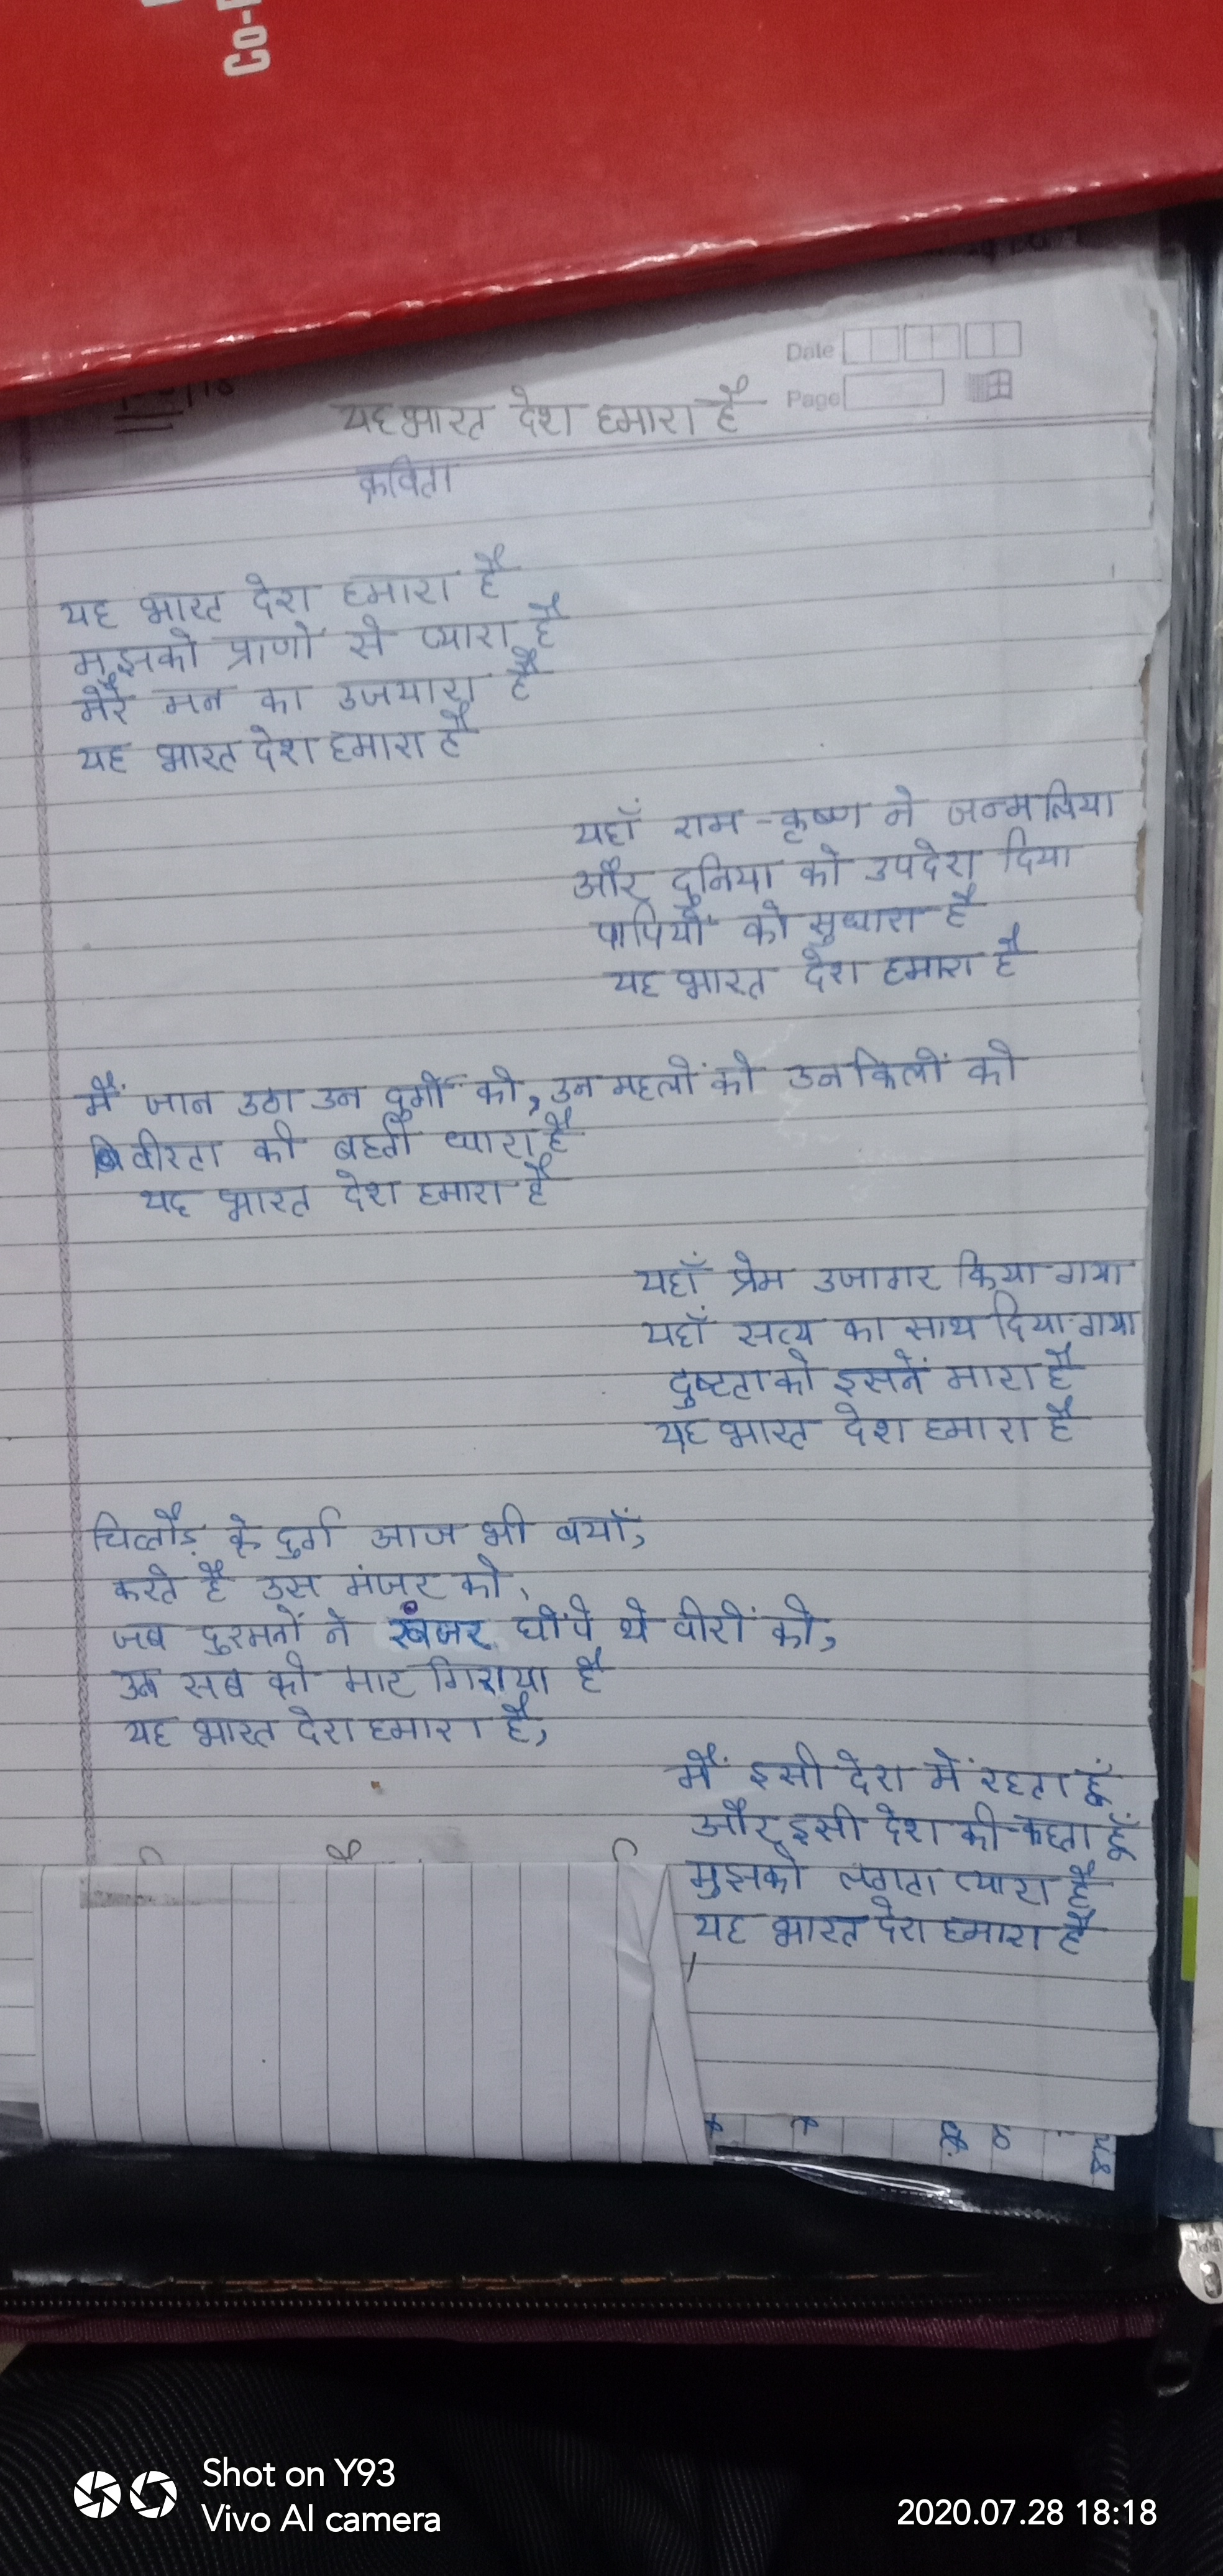 Co-
Date
Page
यह भारत देश हमारा है
कविता
यह भारत देश हमारा है
मुझको प्राणों से प्यारा है
मेरे मन का उजयारा है
यह भारत देश हमारा है
यहाँ राम-कृष्ण ने जन्म लिया
और दुनिया को उपदेश दिया
पापियों को सुधारा है
यह भारत देश हमारा है
मैं जान उठा उन दुर्गों को, उन महलों को उन किलों को
वीरता की बहती धारा है
यह भारत देश हमारा है
यहाँ प्रेम उजागर किया गया
यहाँ सत्य का साथ दिया गया
दुष्टता को इसनें मारा है
यह भारत देश हमारा है
चित्तौड़ के दुर्ग आज भी बयाँ,
करते है उस मंजर को,
जब दुश्मनों ने खंजर घोंपे थे वीरों को,
उन सब को मार गिराया है
यह भारत देश हमारा है,
मैं इसी देश में रहता हूँ
और इसी देश की कहता हूँ
मुझको लगता प्यारा है
यह भारत देश हमारा है
Shot on Y93
Vivo AI camera
2020.07.28 18:18